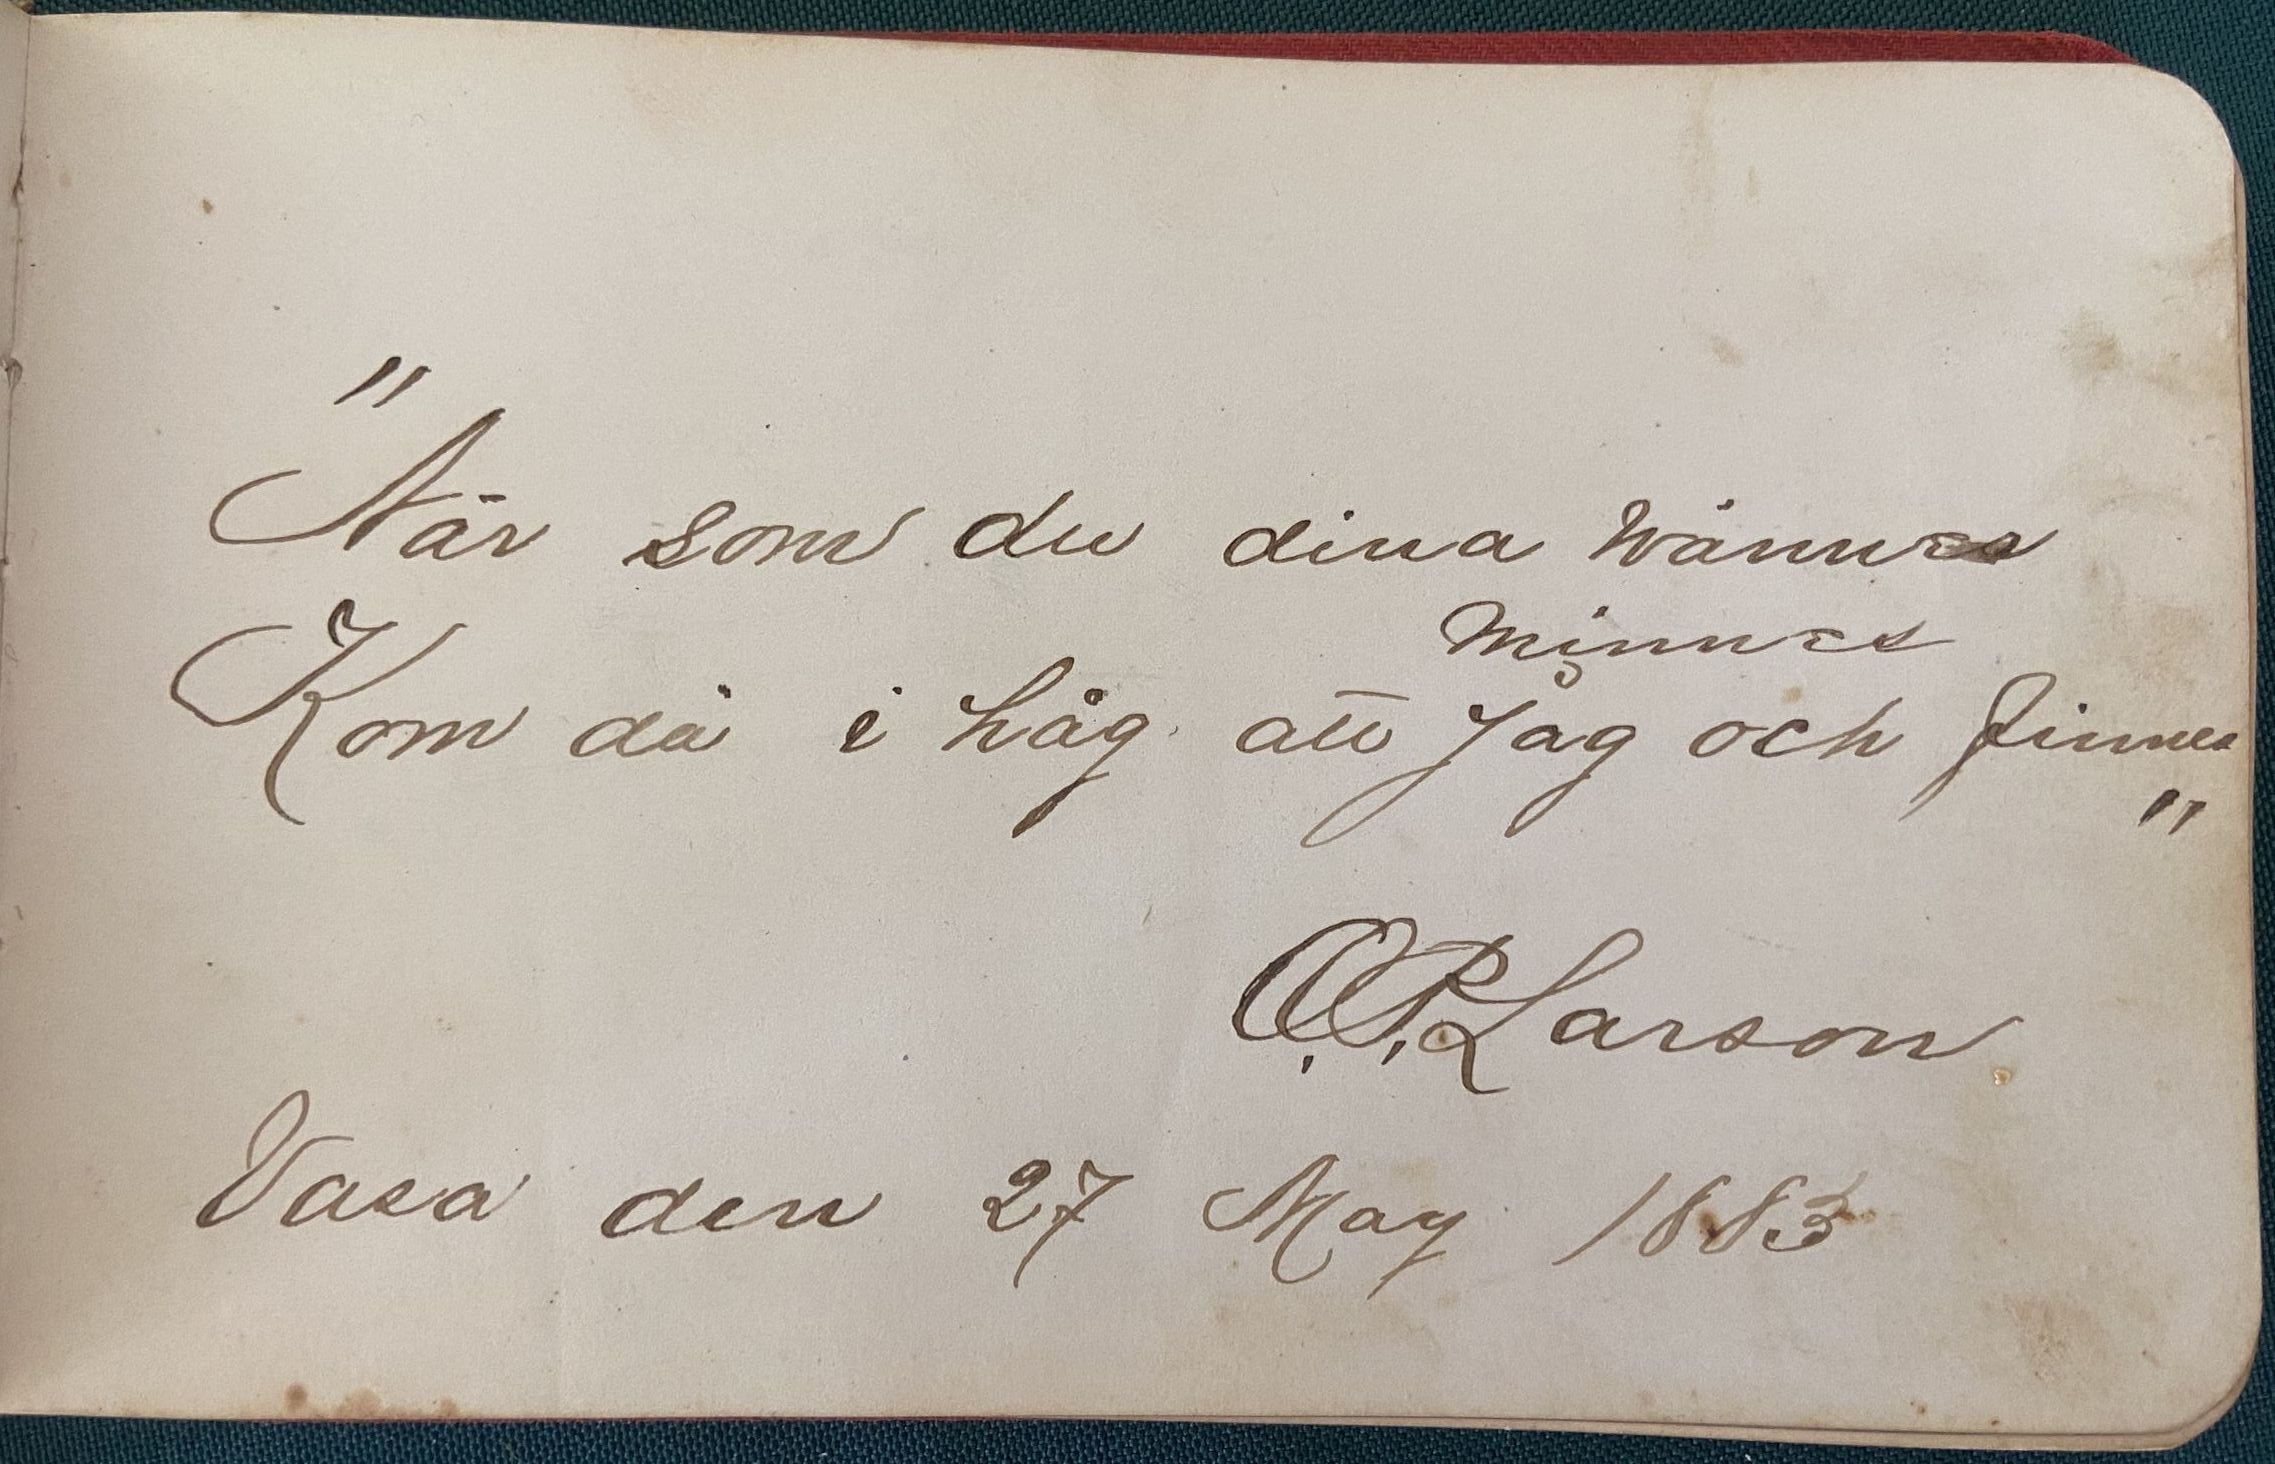 "
När som du dina wänner
minnes
Kom då i håg att Jag och finnes
"
O.P. Larson
Vasa den 27 May 1883